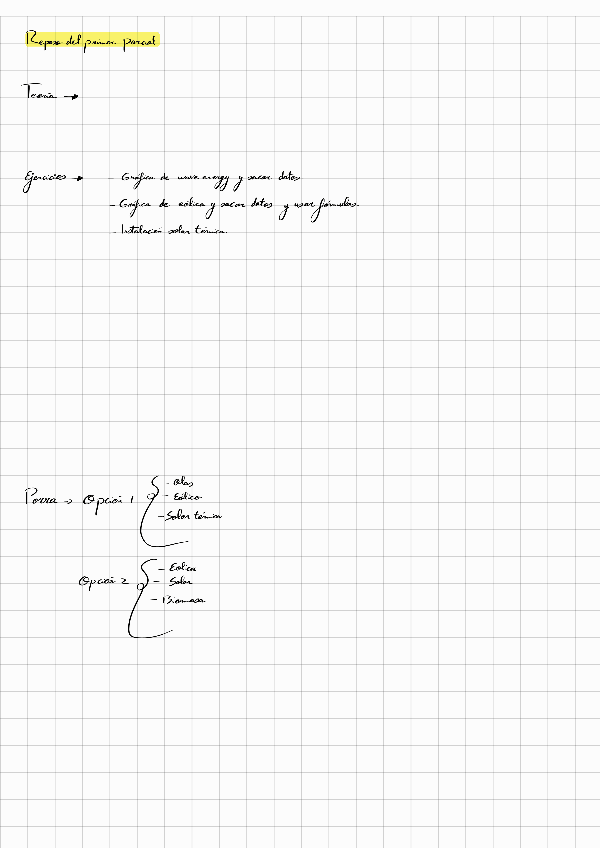 Repaso del primer parcial
Teoría →
Ejercicios → - Gráfica de wave energy y sacar datos
- Gráfica de eólica y sacar datos y usar fórmulas.
- Instalación solar térmica.
Porra → Opción 1
- Olas
- Eólica
- Solar térmica
Opción 2
- Eólica
- Solar
- Biomasa